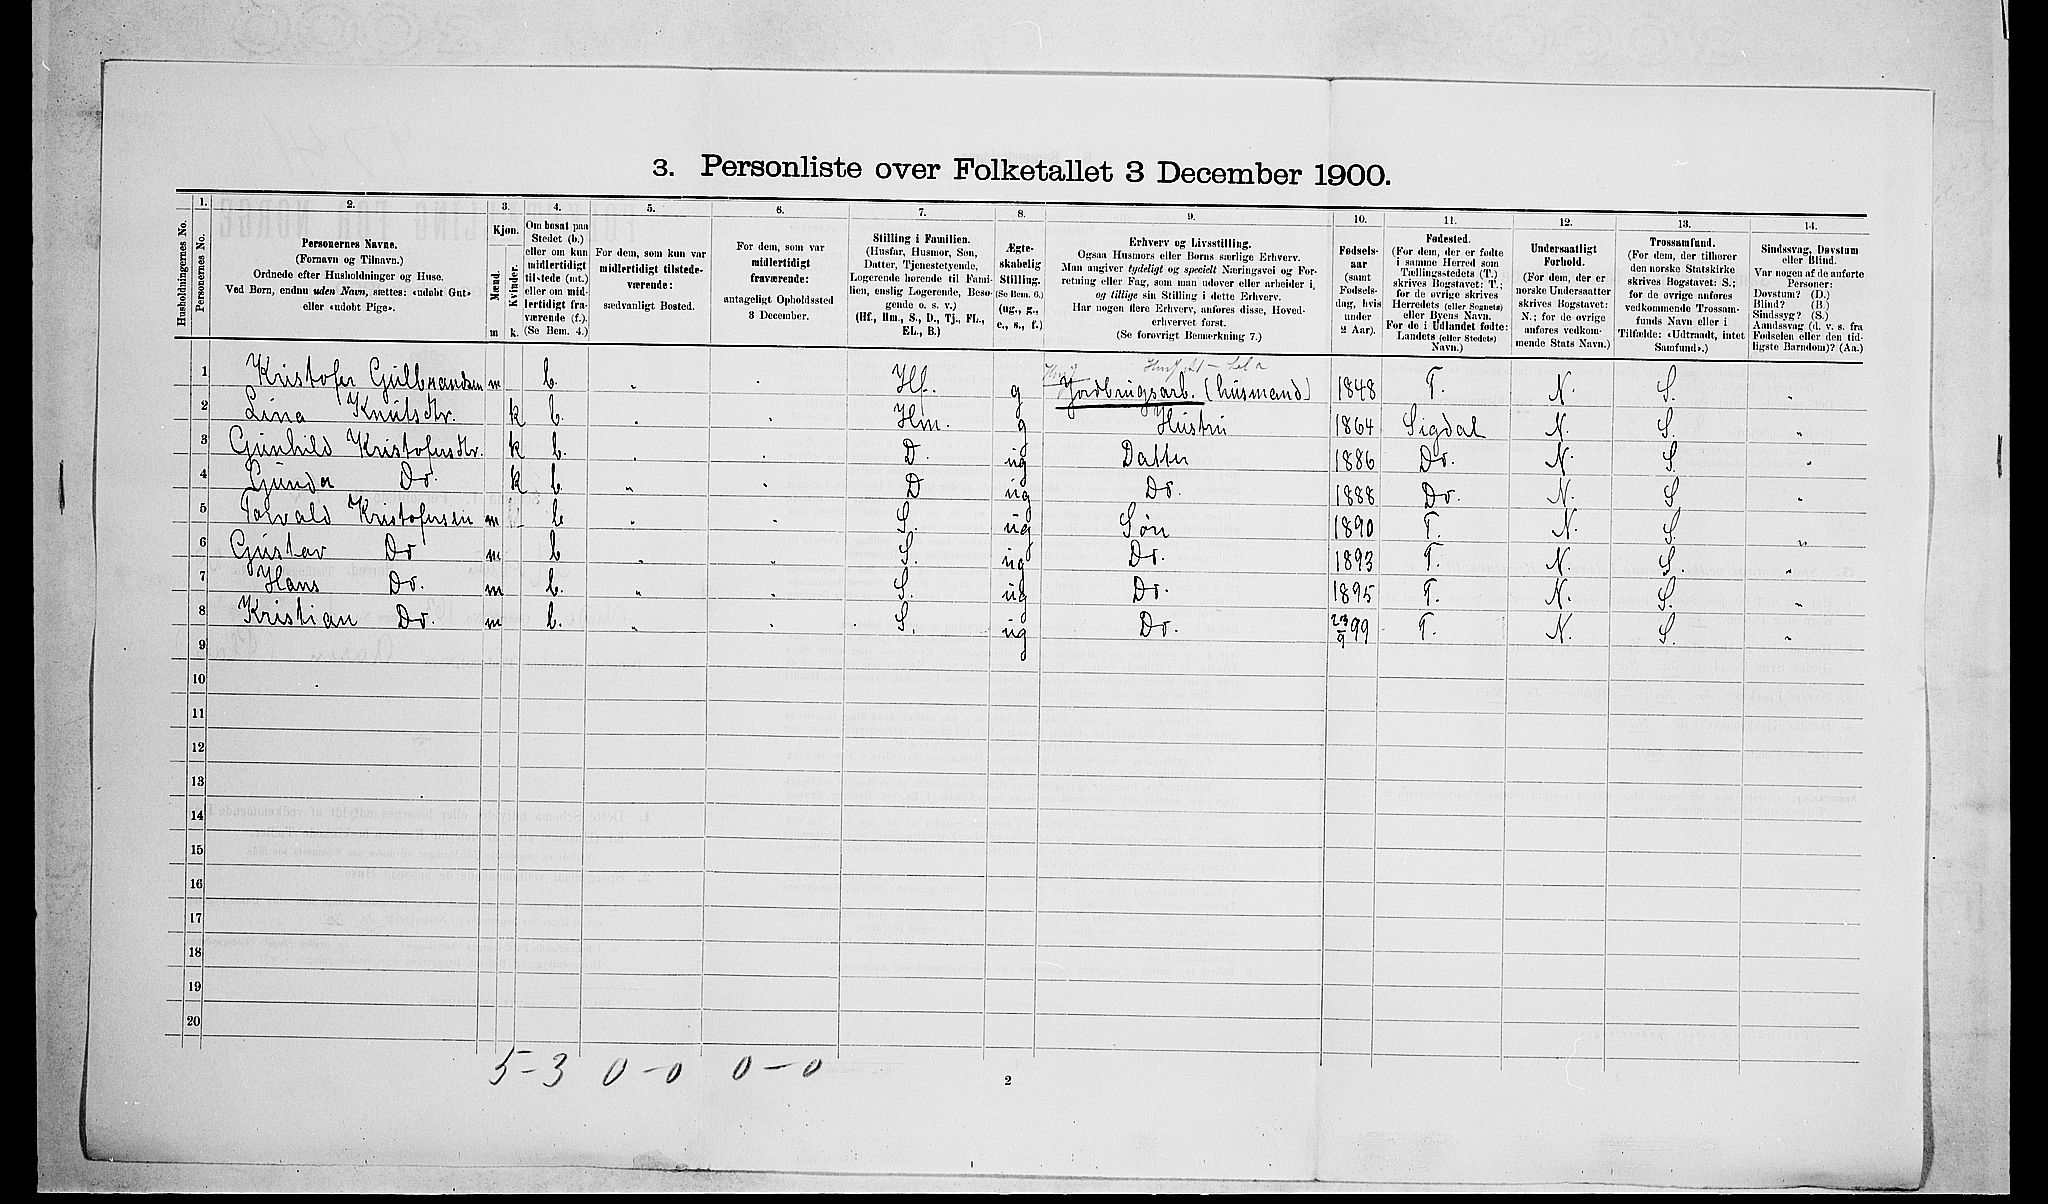 3. Personliste over Folketallet 3 December 1900.
1. 2. 3. 4. 5. 6. 7. 8. 9. 10. 11. 12. 13. 14.
Husholdningernes No.
Personernes No.
Personernes Navne.
(Fornavn og Tilnavn.)
Ordnede efter Husholdninger og Huse.
Ved Børn, endnu uden Navn, sættes: «udøbt Gut»
eller «udøbt Pige».
Kjøn.
Mænd.
Kvinder.
m k.
Om bosat paa
Stedet (b.)
eller om kun
midlertidigt
tilstede (mt.)
eller om mid-
lertidigt fra-
værende (f.).
(Se Bem. 4.)
For dem, som kun var
midlertidigt tilstede-
værende:
sædvanligt Bosted.
For dem, som var
midlertidigt
fraværende:
antageligt Opholdssted
3 December.
Stilling i Familien.
(Husfar, Husmor, Søn,
Datter, Tjenestetyende,
Logerende hørende til Fami-
lien, enslig Logerende, Besø-
gende o. s. v.)
(Hf., Hm., S., D., Tj., FL.,
EL., B.)
Ægte-
skabelig
Stilling.
(Se Bem. 6.)
(ug., g.,
e., s., f.)
Erhverv og Livsstilling.
Ogsaa Husmors eller Børns særlige Erhverv.
Man angiver tydeligt og specielt Næringsvei og For-
retning eller Fag, som man udøver eller arbeider i,
og tillige sin Stilling i dette Erhverv.
Har nogen flere Erhverv, anføres disse, Hoved-
erhvervet først.
(Se forøvrigt Bemærkning 7.)
Fødsels-
aar
(samt
Fødsels-
dag, hvis
under
2 Aar).
Fødested.
(For dem, der er fødte
i samme Herred som
Tællingsstedets (T.)
skrives Bogstavet: T.;
for de øvrige skrives
Herredets (eller Sognets)
eller Byens Navn.
For de i Udlandet fødte:
Landets (eller Stedets)
Navn.)
Undersaatligt
Forhold.
(For dem, der er
norske Undersaatter
skrives Bogstavet:
N.; for de øvrige
anføres vedkom-
mende Stats Navn.)
Trossamfund.
(For dem, der tilhører
den norske Statskirke
skrives Bogstavet: S.;
for de øvrige anføres
vedkommende Trossam-
funds Navn eller i
Tilfælde: «Udtraadt, intet
Samfund».)
Sindssvag, Døvstum
eller Blind.
Var nogen af de anførte
Personer:
Døvstum? (D.)
Blind? (B.)
Sindssyg? (S.)
Aandssvag (d. v. s. fra
Fødselen eller den tid-
ligste Barndom)? (Aa.)
1 Kristofer Gulbrandsen m b. " " Hf. g Jordbrugsarb. (husmand) 1848 T. N. S. "
2 Lina Knutsdtr. k b. " " Hm. g Hustru 1864 Sigdal N. S. "
3 Gunhild Kristofersdtr. k b. " " D. ug Datter 1886 Do. N. S. "
4 Gunda Do. k b. " " D ug Do. 1888 Do. N. S "
5 Torvald Kristofersen m b " " S. ug Søn 1890 T. N. S.
6 Gustav Do m b " " S. ug Do. 1893 T. N. S. "
7 Hans Do. m b. " " S. ug Do. 1895 T. N. S. "
8 Kristian Do. m b. " " S. ug Do. 23/9 99 T. N. S. "
9
10
11
12
13
14
15
16
17
18
19
20
5-3 0-0 0-0
2